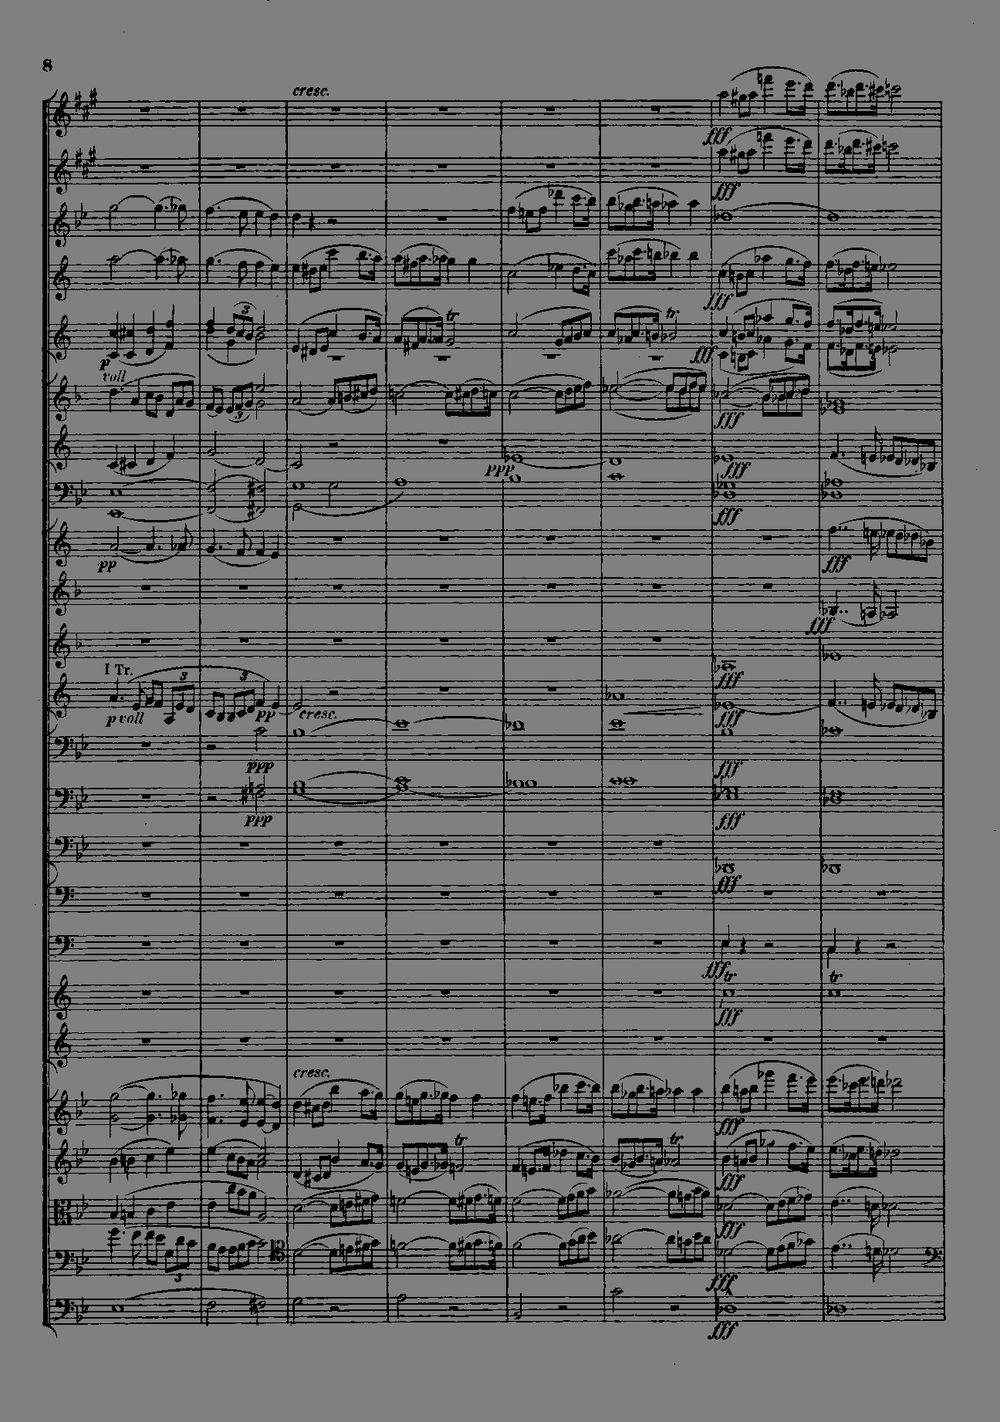 8
cresc.
fff
fff
fff
3
tr
tr
p
fff
voll
3
fff
ppp
fff
fff
pp
fff
fff
I Tr.
3
3
fff
p voll
pp
cresc.
fff
ppp
fff
ppp
fff
fff
fff
tr
tr
fff
cresc.
fff
tr
tr
fff
fff
3
fff
fff